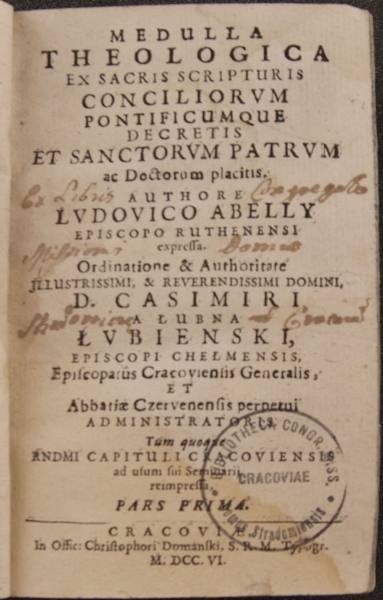 MEDULLA
THEOLOGICA
EX SACRIS SCRIPTURIS
CONCILIORVM
PONTIFICUMQUE
DECRETIS
ET SANCTORVM PATRVM
ac Doctorum placitis.
Ex Libris
AUTHORE
LVDOVICO ABELLY
EPISCOPO RUTHENENSI
expressa.
Missionis Domus
Ordinatione & Authoritate
ILLUSTRISSIMI, & REVERENDISSIMI DOMINI,
D. CASIMIRI
A ŁUBNA
ŁVBIENSKI,
EPISCOPI CHELMENSIS,
Episcopatûs Cracoviensis Generalis,
ET
Abbatiæ Czervenensis perpetui
ADMINISTRATORIS,
Tum quoque
RNDMI CAPITULI CRACOVIENSIS
ad usum sui Seminarii
reimpressa.
PARS PRIMA.
BIBLIOTHECA CONGR. MISS.
CRACOVIAE
Domus Stradomiensis
CRACOVIÆ
In Offic: Christophori Domanski, S. R. M. Typogr.
M. DCC. VI.